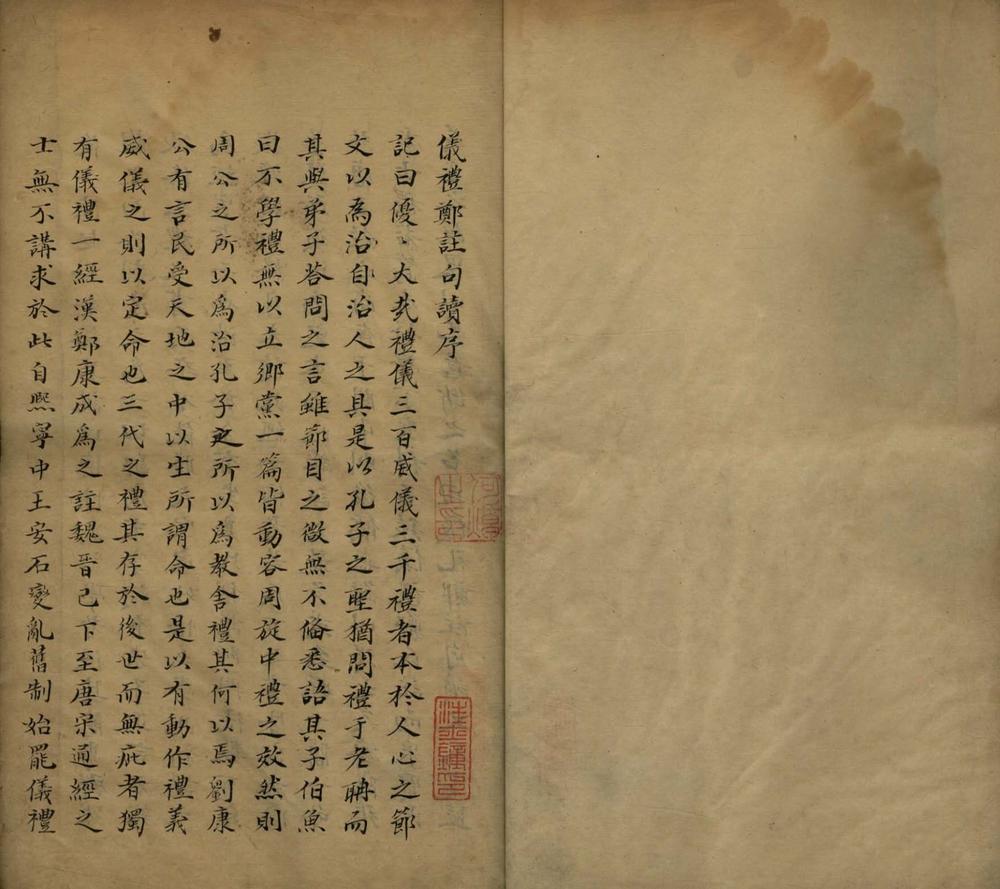 儀禮鄭註句讀序
記曰優〻大哉禮儀三百威儀三千禮者本於人心之節
文以為治自治人之具是以孔子之聖猶問禮于老聃而
其與弟子荅問之言雖節目之微無不俻悉語其子伯魚
曰不學禮無以立鄉黨一篇皆動容周旋中禮之效然則
周公之所以為治孔子之所以為教舍禮其何以焉劉康
公有言民受天地之中以生所謂命也是以有動作禮義
威儀之則以定命也三代之禮其存於後世而無疵者獨
有儀禮一經漢鄭康成為之註魏晉已下至唐宋通經之
士無不講求於此自熙寧中王安石變亂舊制始罷儀禮